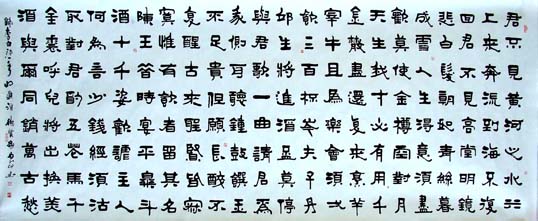 君不見黃河之水天
上來奔流到海不復
回君不見高堂明鏡
悲白髮朝如青絲暮
成雪人生得意須盡
歡莫使金樽空對月
天生我材必有用千
金散盡還復來烹羊
宰牛且為樂會須一
飲三百杯岑夫子丹
邱生將進酒杯莫停
與君歌一曲請君為
我傾耳聽鐘鼓饌玉
不足貴但願長醉不
復醒古來聖賢皆寂
寞惟有飲者留其名
陳王昔時宴平樂斗
酒十千恣歡謔主人
何為言少錢徑須沽
取對君酌五花馬千
金裘呼兒將出換美
酒與爾同銷萬古愁